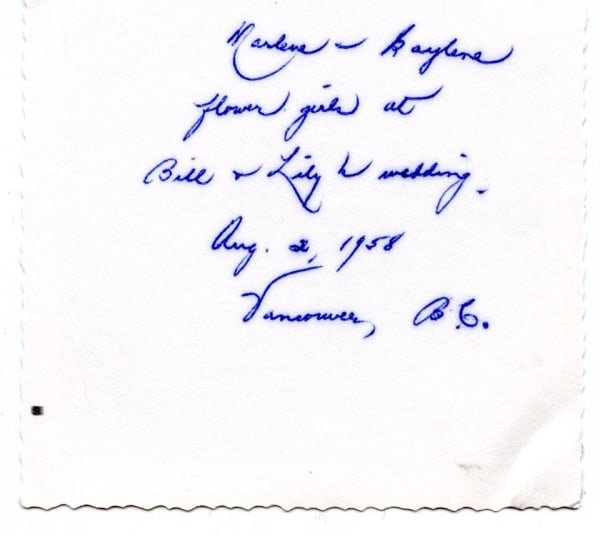 Marlene & Kaylene
flower girls at
Bill & Lily's wedding.
Aug. 2, 1958
Vancouver, B.C.